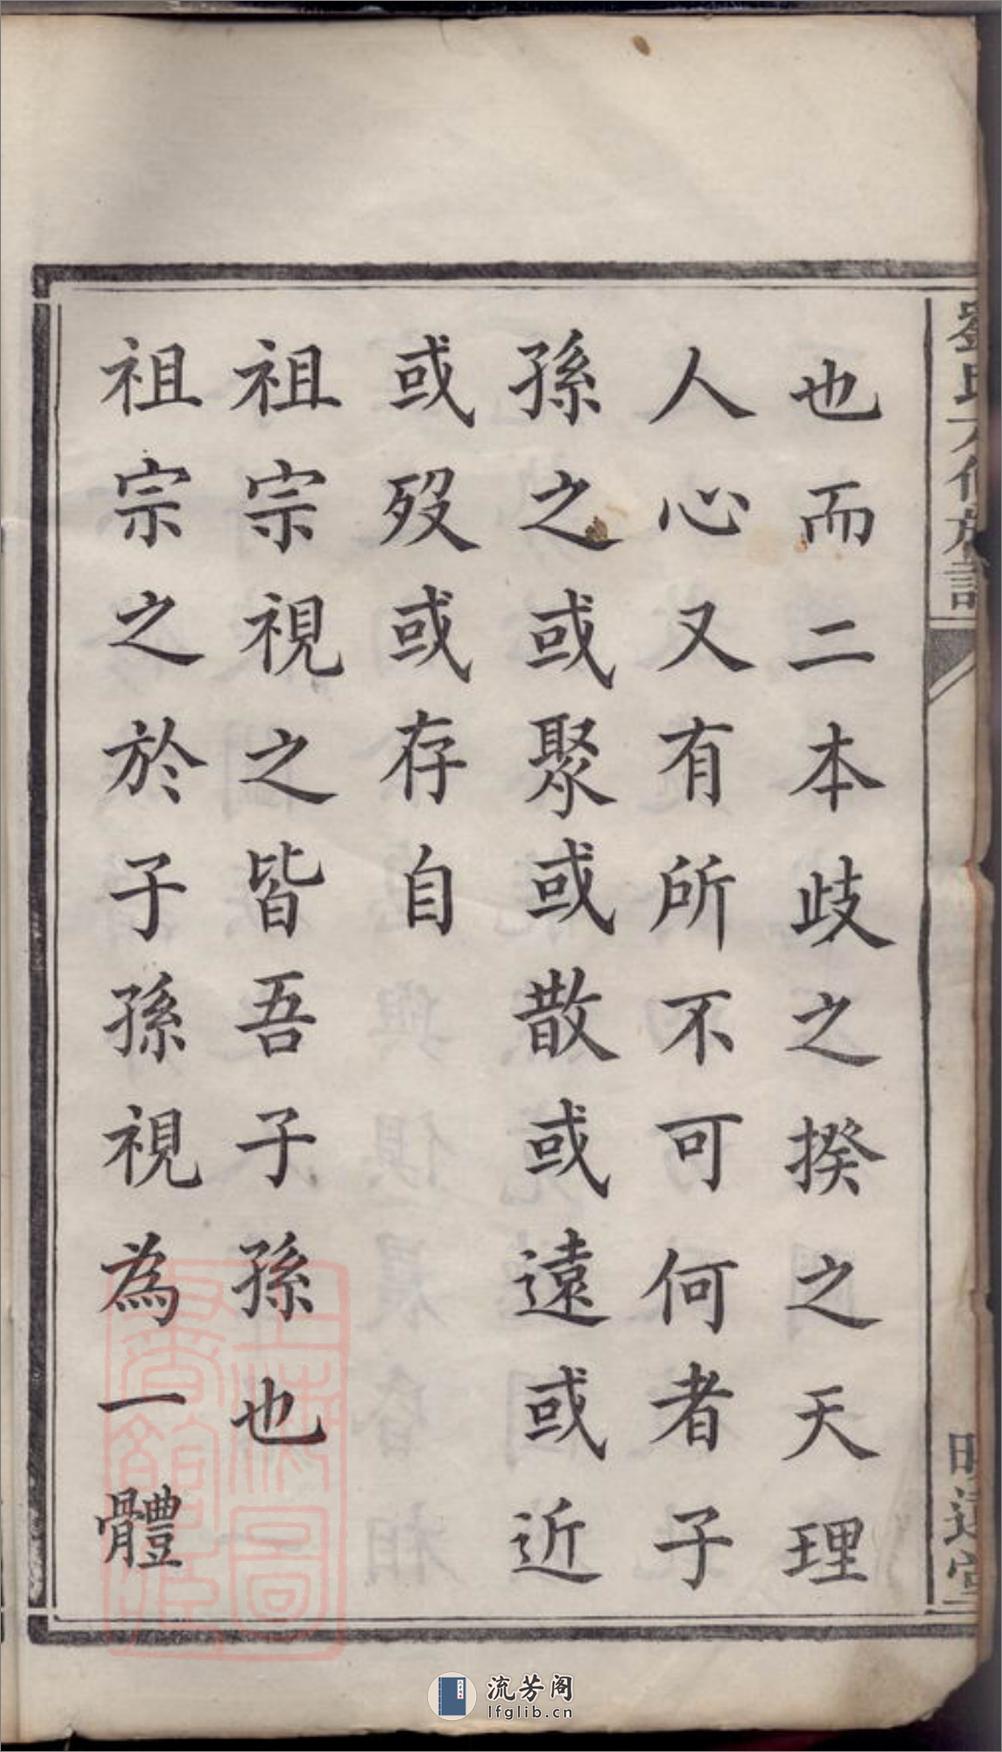 也而二本歧之揆之天理
人心又有所不可何者子
孫之或聚或散或遠或近
或歿或存自
祖宗視之皆吾子孫也
祖宗之於子孫視為一體
上海圖書館藏
流芳阁
lfglib.cn